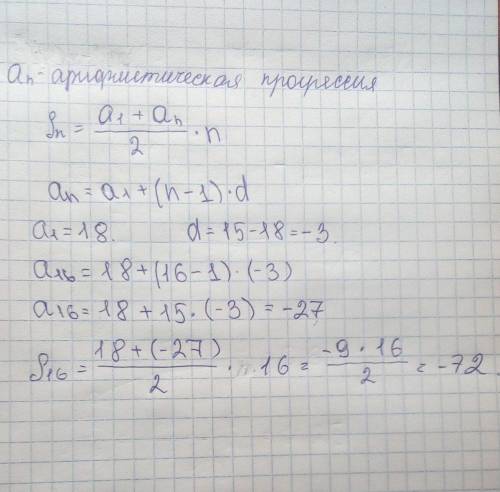 an - арифметическая прогрессия
Sn = (a1 + an)/2 · n
an = a1 + (n-1)·d
a1 = 18. d = 15-18 = -3.
a16 = 18 + (16-1)·(-3)
a16 = 18 + 15·(-3) = -27
S16 = (18 + (-27))/2 · 16 = (-9·16)/2 = -72.